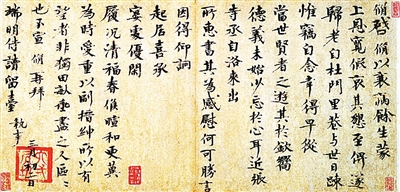 脩啓脩以衰病餘生蒙
上恩寬假哀其懇至俾遂
歸老自杜門里巷與世日疎
惟竊自念幸得早從
當世賢者之遊其於欽嚮
德義未始少忘於心耳近張
寺丞自洛來出
所惠書其為感慰何可勝言
因得仰詢
起居喜承
宴處優閑
履況清福春候暄和更冀
為時愛重以副搢紳所以有
望者非獨田畝垂盡之人區〻
也不宣脩再拜
端明侍讀留臺執事
三月初二日